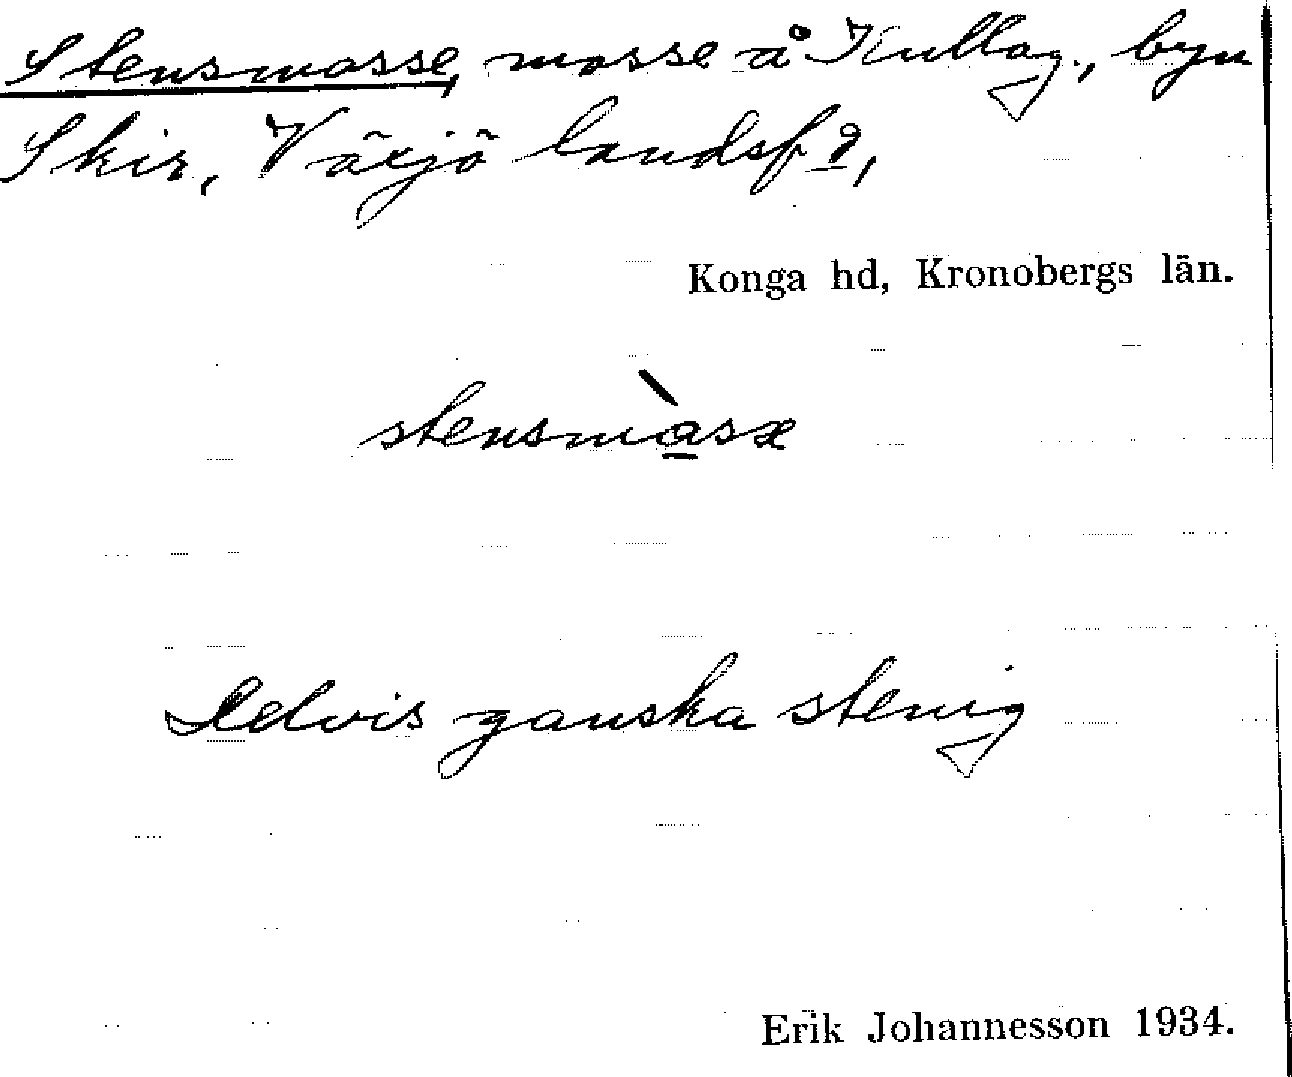 Stensmosse, mosse å Kullag., byn
Skir, Växjö landsf̱ỡ,
Konga hd, Kronobergs län.
stensmàsæ
Delvis ganska stenig
Erik Johannesson 1934.